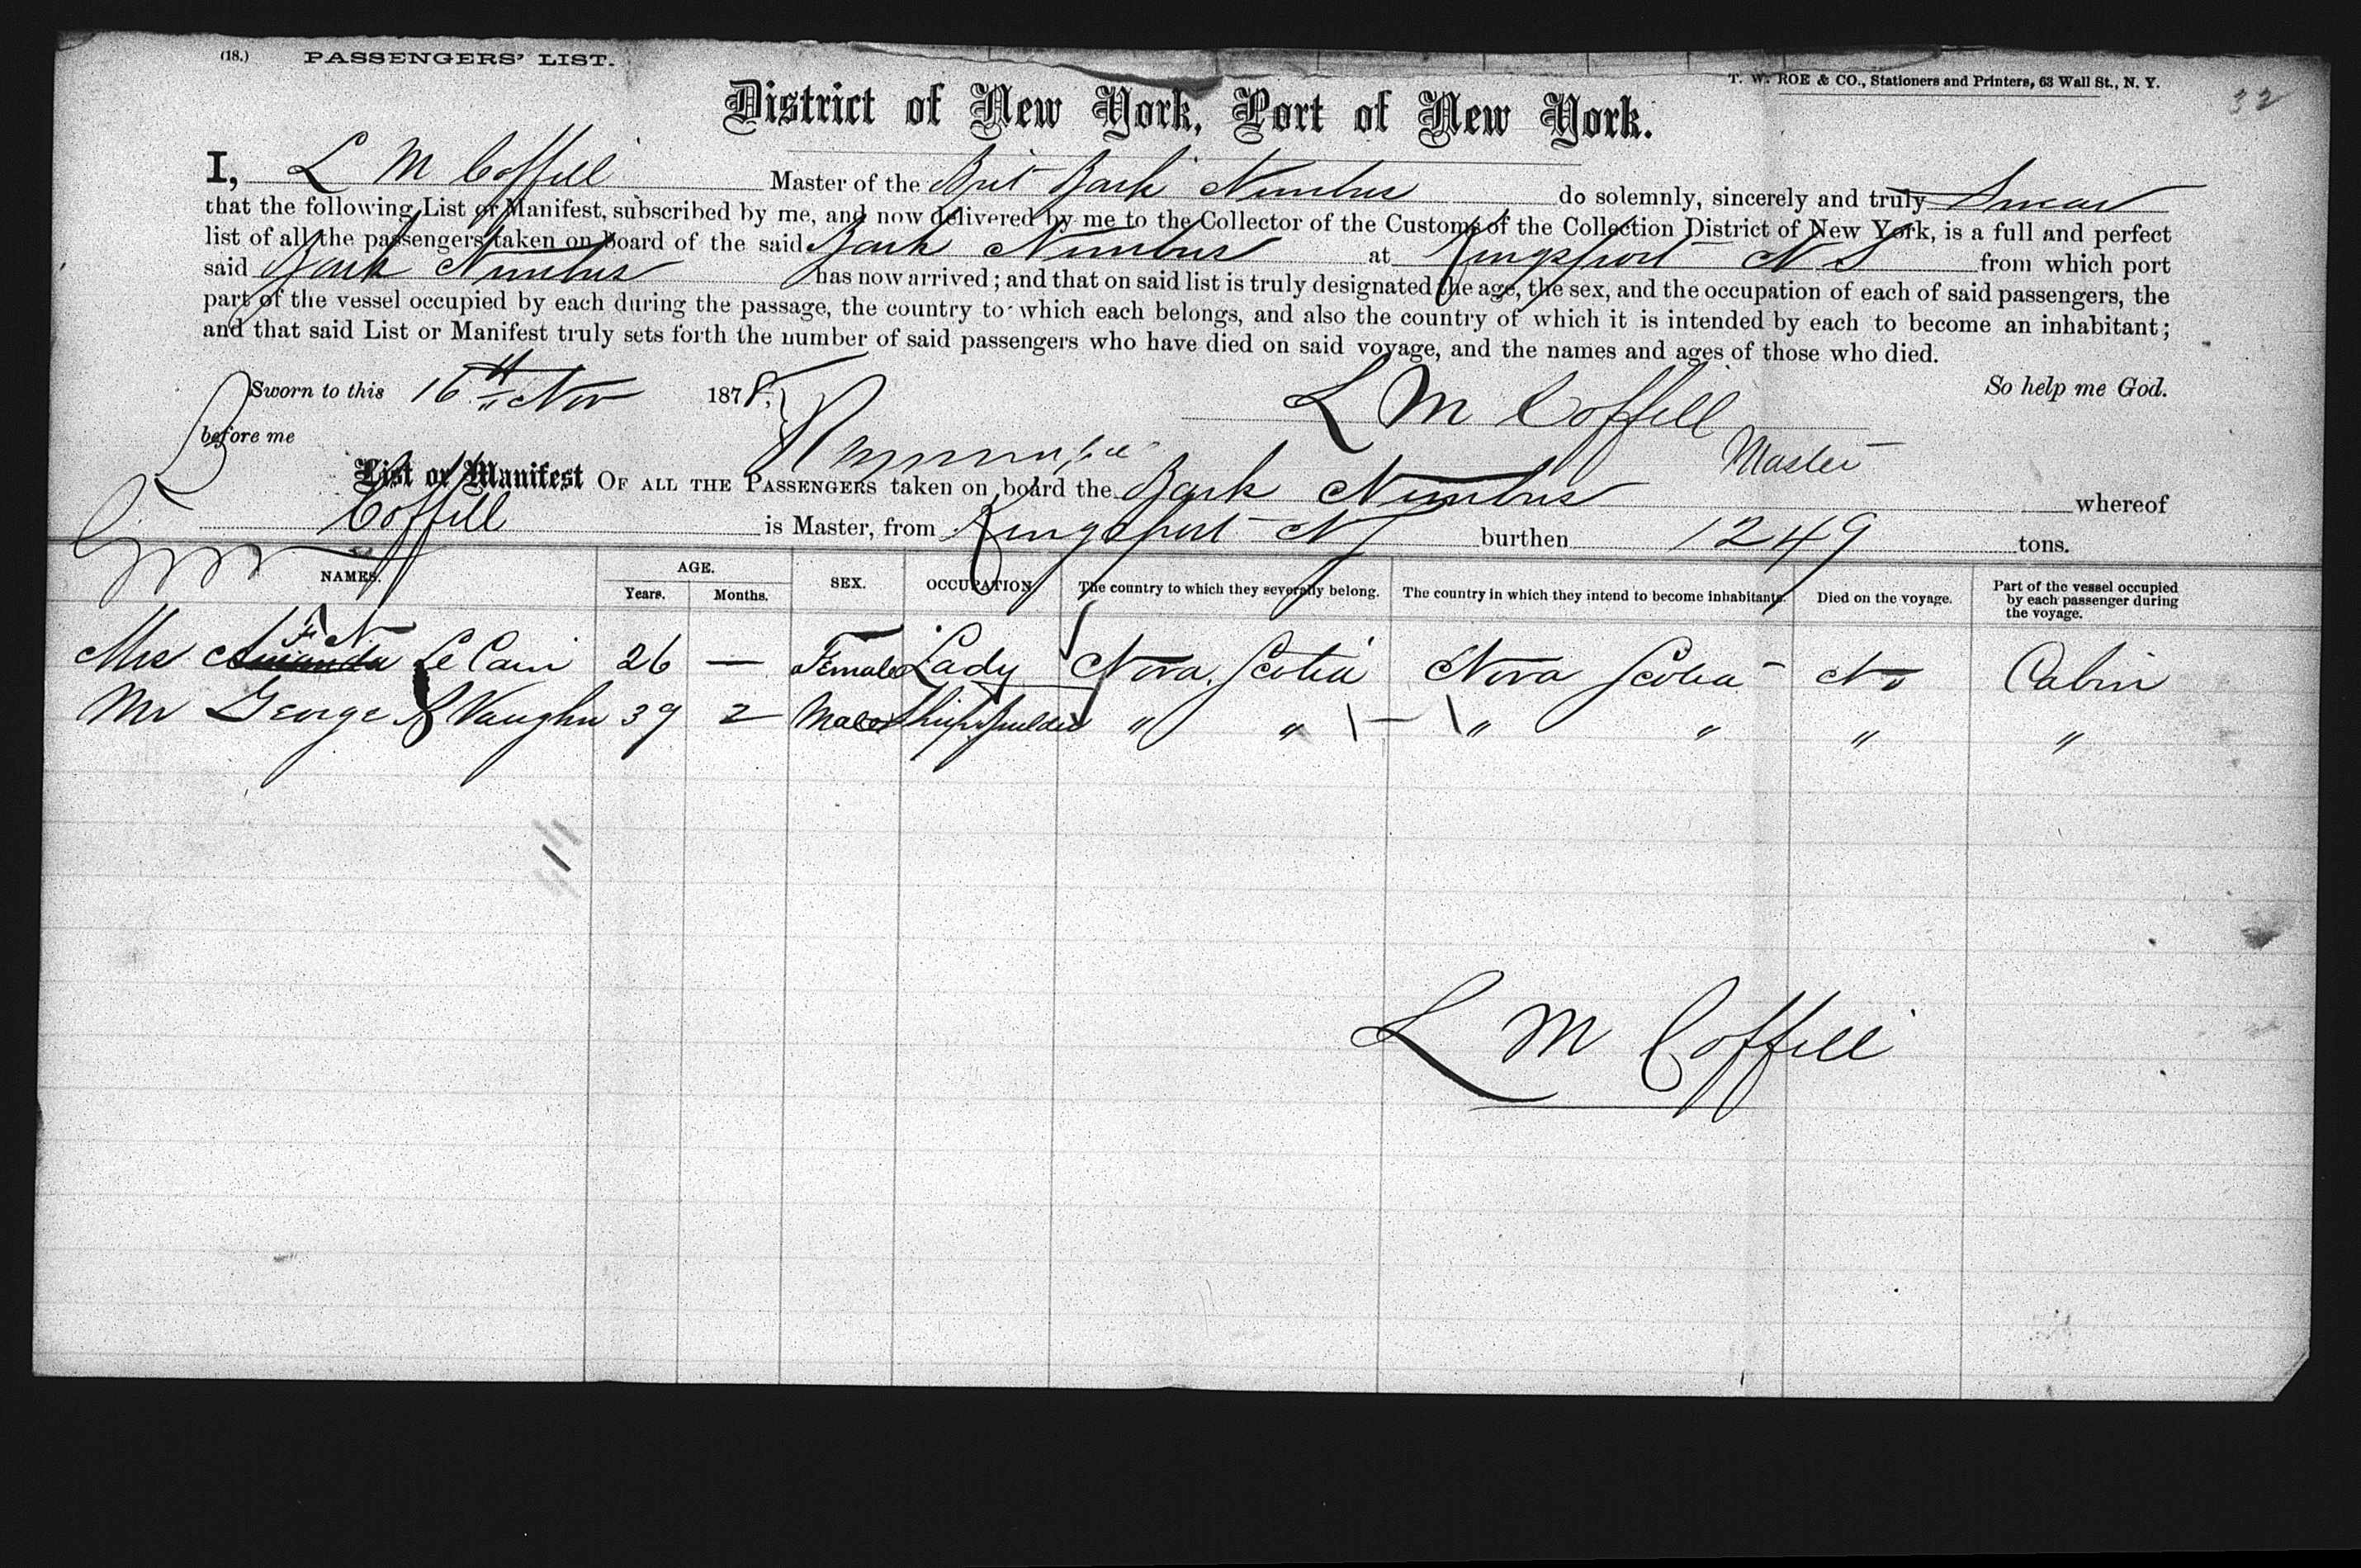 (18.) PASSENGERS' LIST.
T. W. ROE & CO., Stationers and Printers, 63 Wall St., N. Y.
32
District of New York, Port of New York.
I, L M Coffill Master of the Brit Bark Nimbus do solemnly, sincerely and truly Swear
that the following List or Manifest, subscribed by me, and now delivered by me to the Collector of the Customs of the Collection District of New York, is a full and perfect
list of all the passengers taken on board of the said Bark Nimbus at Kingsport N S from which port
said Bark Nimbus has now arrived; and that on said list is truly designated the age, the sex, and the occupation of each of said passengers, the
part of the vessel occupied by each during the passage, the country to which each belongs, and also the country of which it is intended by each to become an inhabitant;
and that said List or Manifest truly sets forth the number of said passengers who have died on said voyage, and the names and ages of those who died.
Sworn to this 16th Nov 1878, So help me God.
before me L M Coffill
Master
List or Manifest OF ALL THE PASSENGERS taken on board the Bark Nimbus whereof
Coffill is Master, from Kingsport N S burthen 1249 tons.
NAMES. AGE. Years. Months. SEX. OCCUPATION The country to which they severally belong. The country in which they intend to become inhabitants. Died on the voyage. Part of the vessel occupied by each passenger during the voyage.
Mrs Amanda F N Le Cain 26 — Female Lady Nova Scotia Nova Scotia No Cabin
Mr George S Vaughn 39 2 Male Ship Builder " " " " " "
L M Coffill